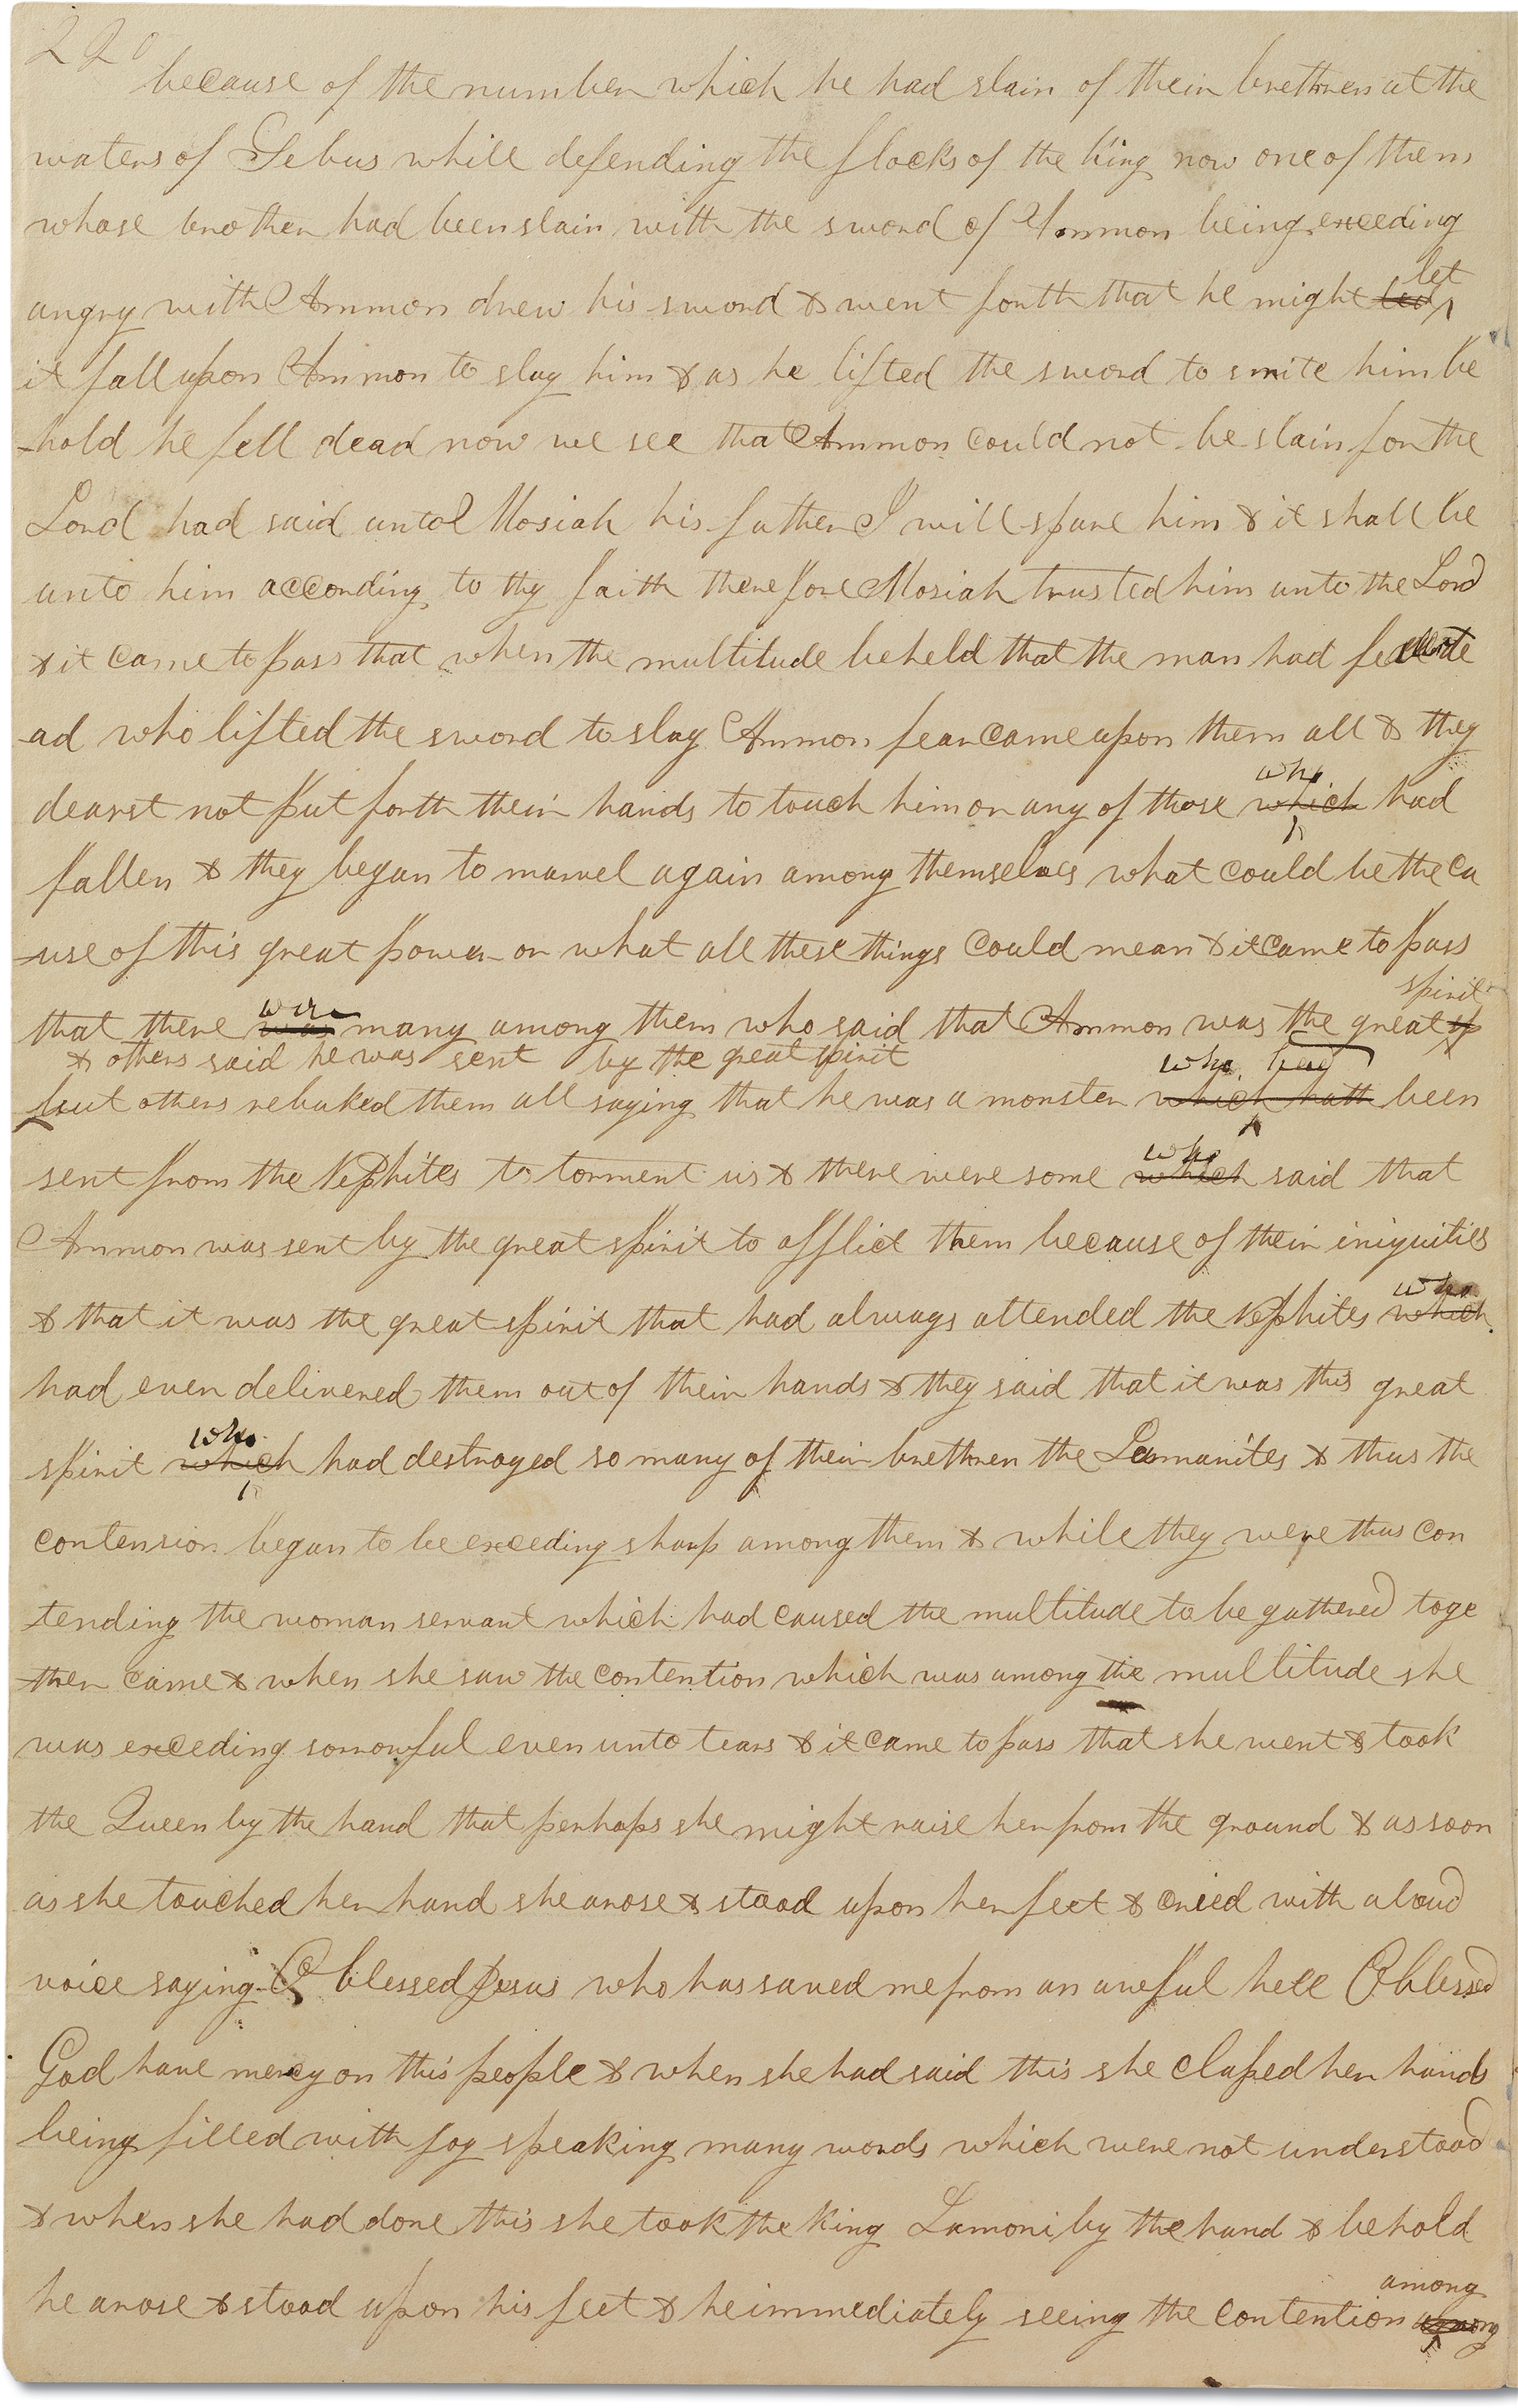 220
because of the number which he had slain of their brethren at the
waters of Sebus while defending the flocks of the king now one of them
whose brother had been slain with the sword of Ammon being exceeding
let
angry with Ammon drew his sword & went forth that he might
it fall upon Ammon to slay him & as he lifted the sword to smite him be
-hold he fell dead now we see that Ammon could not be slain for the
Lord had said unto Mosiah his father I will spare him & it shall be
unto him according to thy faith therefore Mosiah trusted him unto the Lord
& it came to pass that when the multitude beheld that the man had de
ad who lifted the sword to slay Ammon fear came upon them all & they
who
dearst not put forth their hands to touch him or any of those which had
fallen & they began to marvel again among themselves what could be the ca
-use of this great power or what all these things could mean & it came to pass
spirit
were
that there was many among them who said that Ammon was the great sp
& others said he was sent by the great spirit
who had
but others rebuked them all saying that he was a monster which hath been
who
sent from the Nephites to torment us & there were some which said that
Ammon was sent by the great spirit to afflict them because of their iniquities
who
& that it was the great spirit that had always attended the Nephites which
had even delivered them out of their hands & they said that it was this great
who
spirit which had destroyed so many of their brethren the Lamanites & thus the
contension began to be exceeding sharp among them & while they were thus con
tending the woman servant which had caused the multitude to be gathered toge
ther came & when she saw the contention which was among the multitude she
was exceeding sorrowful even unto tears & it came to pass that she went & took
the Queen by the hand that perhaps she might raise her from the ground & as soon
as she touched her hand she arose & stood upon her feet & cried with a loud
voice saying O blessed Jesus who has saved me from an aweful hell O blessed
God have mercy on this people & when she had said this she claped her hands
being filled with joy speaking many words which were not understood
& when she had done this she took the king Lamoni by the hand & behold
among
he arose & stood upon his feet & he immediately seeing the contention among